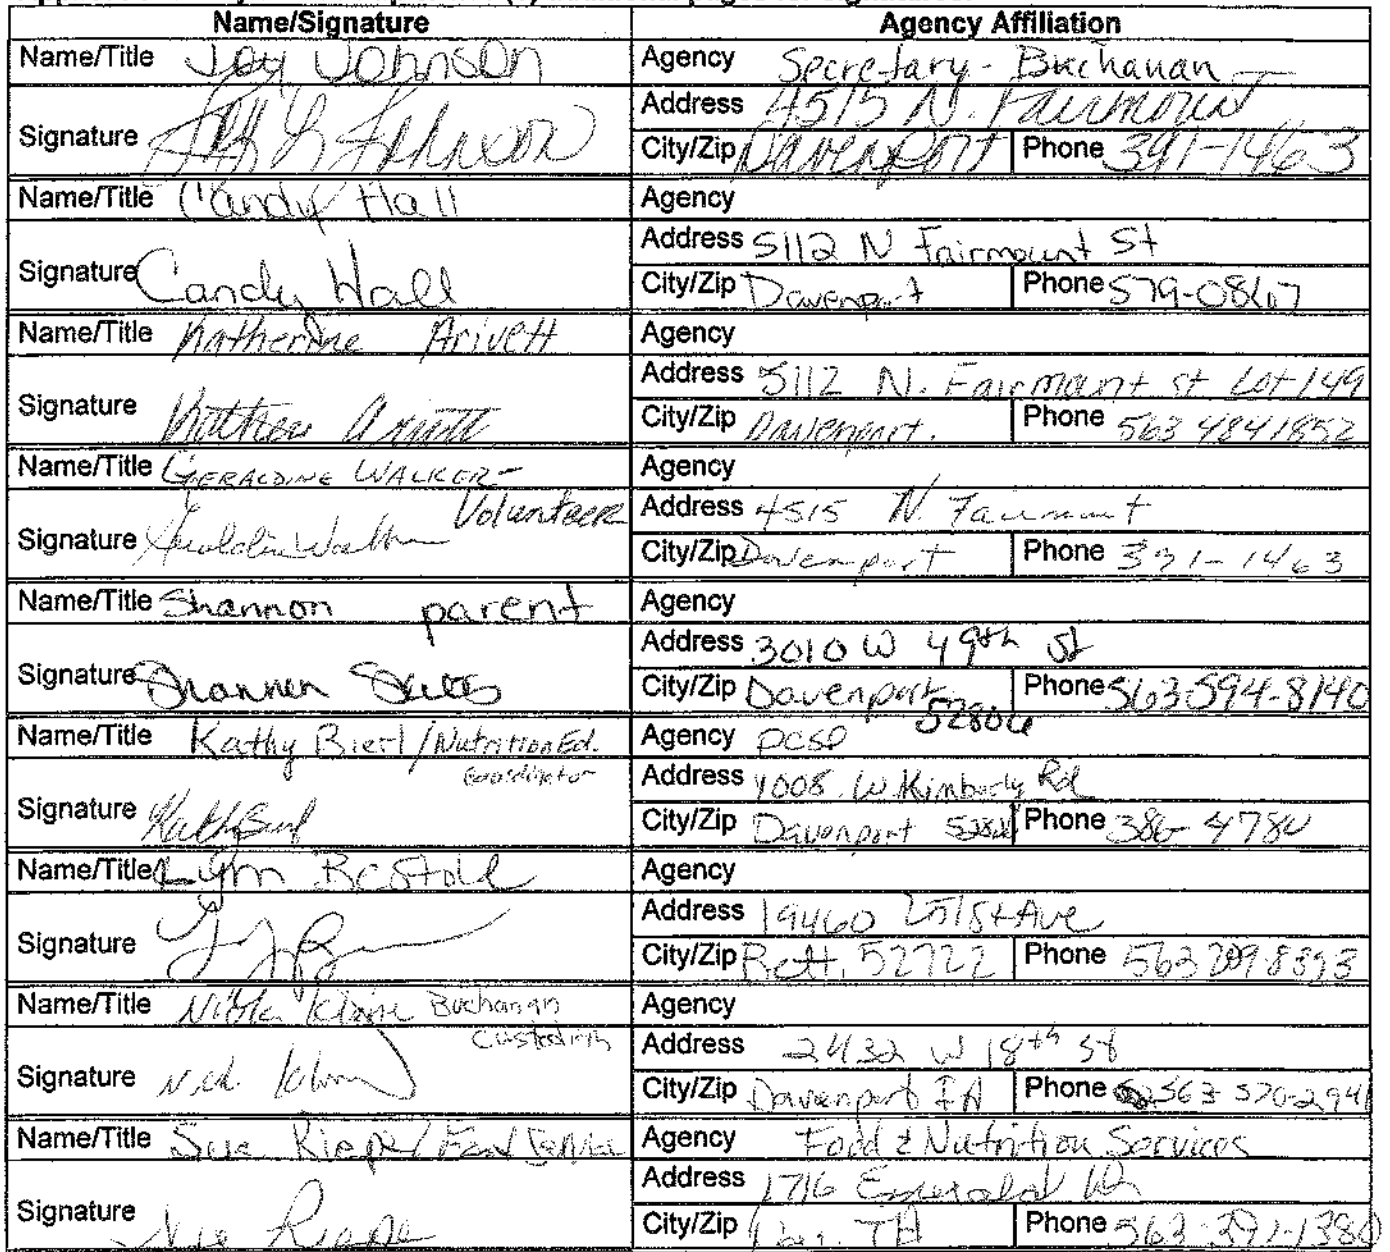 Name/Signature Agency Affiliation
Name/Title Joy Johnson Agency Secretary - Buchanan
Signature Johnson Address 4515 N. Fairmount
City/Zip Davenport Phone 391-1463
Name/Title Candy Hall Agency
Signature Candy Hall Address 5112 N Fairmount St
City/Zip Davenport Phone 579-0867
Name/Title Katherine Arivett Agency
Signature Address 5112 N. Fairmount st Lot 149
City/Zip Davenport. Phone 563 4841852
Name/Title GERALDINE WALKER-
Volunteer Agency
Signature Geraldine Walker Address 4515 N. Fairmount
City/Zip Davenport Phone 391-1463
Name/Title Shannon parent Agency
Signature Shannon Address 3010 W 49th St
City/Zip Davenport 52806 Phone 563 594-8140
Name/Title Kathy Bierl/Nutrition Ed.
Coordinator Agency DCSD
Signature Address 1008 W. Kimberly Rd
City/Zip Davenport Phone 386-4780
Name/Title Lynn Agency
Signature Address 19460 251st Ave
City/Zip Bett. 52722 Phone 563
Name/Title Buchanan
Custodian Agency
Signature Address 2432 W 18th St
City/Zip Davenport IA Phone 563 570-2941
Name/Title Sue Riepe/ Food Service Agency Food & Nutrition Services
Signature Sue Riepe Address 1716 Emerald Dr
City/Zip Phone 563-391-1380